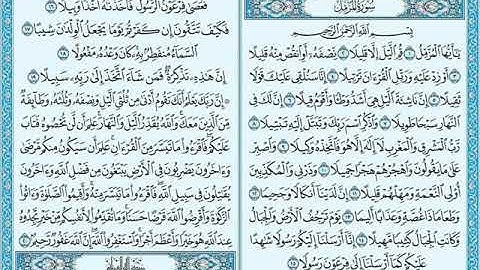 سُورَةُ المُزَّمِّل
بِسْمِ ٱللَّهِ ٱلرَّحْمَٰنِ ٱلرَّحِيمِ
يَٰٓأَيُّهَا ٱلْمُزَّمِّلُ ١ قُمِ ٱلَّيْلَ إِلَّا قَلِيلًا ٢ نِّصْفَهُۥٓ أَوِ ٱنقُصْ مِنْهُ قَلِيلًا
٣ أَوْ زِدْ عَلَيْهِ وَرَتِّلِ ٱلْقُرْءَانَ تَرْتِيلًا ٤ إِنَّا سَنُلْقِى عَلَيْكَ قَوْلًا
ثَقِيلًا ٥ إِنَّ نَاشِئَةَ ٱلَّيْلِ هِىَ أَشَدُّ وَطْـًٔا وَأَقْوَمُ قِيلًا ٦ إِنَّ لَكَ فِى
ٱلنَّهَارِ سَبْحًا طَوِيلًا ٧ وَٱذْكُرِ ٱسْمَ رَبِّكَ وَتَبَتَّلْ إِلَيْهِ تَبْتِيلًا ٨
رَّبُّ ٱلْمَشْرِقِ وَٱلْمَغْرِبِ لَآ إِلَٰهَ إِلَّا هُوَ فَٱتَّخِذْهُ وَكِيلًا ٩ وَٱصْبِرْ
عَلَىٰ مَا يَقُولُونَ وَٱهْجُرْهُمْ هَجْرًا جَمِيلًا ١٠ وَذَرْنِى وَٱلْمُكَذِّبِينَ
أُو۟لِى ٱلنَّعْمَةِ وَمَهِّلْهُمْ قَلِيلًا ١١ إِنَّ لَدَيْنَآ أَنكَالًا وَجَحِيمًا ١٢
وَطَعَامًا ذَا غُصَّةٍ وَعَذَابًا أَلِيمًا ١٣ يَوْمَ تَرْجُفُ ٱلْأَرْضُ وَٱلْجِبَالُ
وَكَانَتِ ٱلْجِبَالُ كَثِيبًا مَّهِيلًا ١٤ إِنَّآ أَرْسَلْنَآ إِلَيْكُمْ رَسُولًا شَٰهِدًا
عَلَيْكُمْ كَمَآ أَرْسَلْنَآ إِلَىٰ فِرْعَوْنَ رَسُولًا ١٥
فَعَصَىٰ فِرْعَوْنُ ٱلرَّسُولَ فَأَخَذْنَٰهُ أَخْذًا وَبِيلًا ١٦
فَكَيْفَ تَتَّقُونَ إِن كَفَرْتُمْ يَوْمًا يَجْعَلُ ٱلْوِلْدَٰنَ شِيبًا ١٧
ٱلسَّمَآءُ مُنفَطِرٌۢ بِهِۦ كَانَ وَعْدُهُۥ مَفْعُولًا ١٨
إِنَّ هَٰذِهِۦ تَذْكِرَةٌ فَمَن شَآءَ ٱتَّخَذَ إِلَىٰ رَبِّهِۦ سَبِيلًا ١٩
إِنَّ رَبَّكَ يَعْلَمُ أَنَّكَ تَقُومُ أَدْنَىٰ مِن ثُلُثَىِ ٱلَّيْلِ وَنِصْفَهُۥ وَثُلُثَهُۥ وَطَآئِفَةٌ
مِّنَ ٱلَّذِينَ مَعَكَ وَٱللَّهُ يُقَدِّرُ ٱلَّيْلَ وَٱلنَّهَارَ عَلِمَ أَن لَّن تُحْصُوهُ فَتَابَ
عَلَيْكُمْ فَٱقْرَءُوا۟ مَا تَيَسَّرَ مِنَ ٱلْقُرْءَانِ عَلِمَ أَن سَيَكُونُ مِنكُم مَّرْضَىٰ
وَءَاخَرُونَ يَضْرِبُونَ فِى ٱلْأَرْضِ يَبْتَغُونَ مِن فَضْلِ ٱللَّهِ وَءَاخَرُونَ
يُقَٰتِلُونَ فِى سَبِيلِ ٱللَّهِ فَٱقْرَءُوا۟ مَا تَيَسَّرَ مِنْهُ وَأَقِيمُوا۟ ٱلصَّلَوٰةَ وَءَاتُوا۟
ٱلزَّكَوٰةَ وَأَقْرِضُوا۟ ٱللَّهَ قَرْضًا حَسَنًا وَمَا تُقَدِّمُوا۟ لِأَنفُسِكُم مِّنْ خَيْرٍ تَجِدُوهُ
عِندَ ٱللَّهِ هُوَ خَيْرًا وَأَعْظَمَ أَجْرًا وَٱسْتَغْفِرُوا۟ ٱللَّهَ إِنَّ ٱللَّهَ غَفُورٌ رَّحِيمٌۢ ٢٠